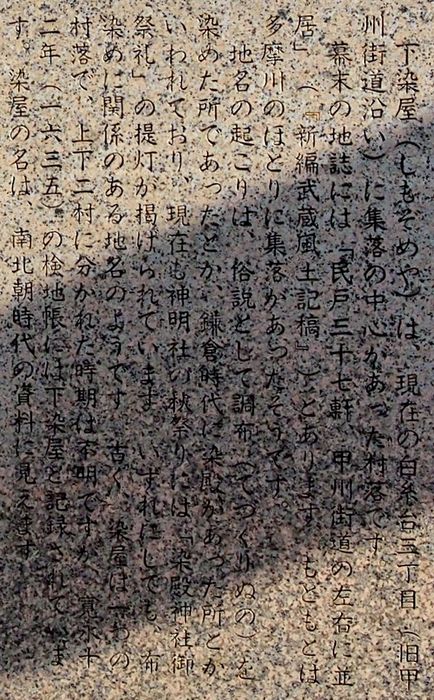 下染屋（しもそめや）は、現在の白糸台三丁目（旧甲
州街道沿い）に集落の中心があった村落です。
幕末の地誌には「民戸三十七軒、甲州街道の左右に並
居」（『新編武蔵風土記稿』）とあります。もともとは
多摩川のほとりに集落があったそうです。
地名の起こりは、俗説として調布（てつくりぬの）を
染めた所であったとか、鎌倉時代に染殿があった所とか
いわれており、現在も神明社の秋祭りには「染殿神社御
祭礼」の提灯が掲げられています。いずれにしても、布
染めに関係のある地名のようです。古く、染屋は一つの
村落で、上下二村に分かれた時期は不明ですが、寛永十
二年（一六三五）の検地帳には下染屋と記録されていま
す。染屋の名は、南北朝時代の資料に見えます。